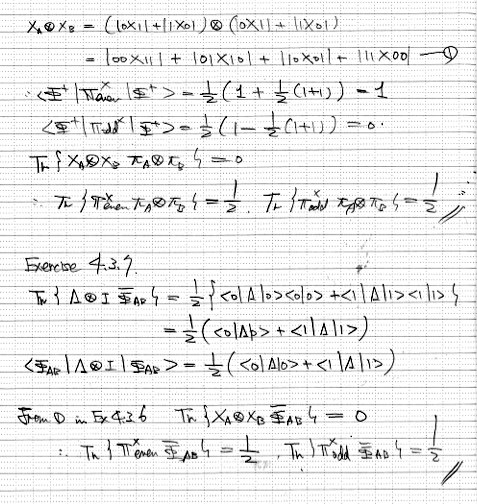 X_A⊗X_B = (|0X1|+|1X0|)⊗(|0X1|+|1X0|)
= |00X11| + |01X10| + |10X01| + |11X00| — ①
∴ <Φ⁺|Π^x_even|Φ⁺> = 1/2(1 + 1/2(1+1)) = 1
<Φ⁺|Π_odd^x|Φ⁺> = 1/2(1 - 1/2(1+1)) = 0.
Tr{X_A⊗X_B π_A⊗π_B} = 0
∴ Tr{Π^x_even π_A⊗π_B} = 1/2, Tr{Π^x_odd π_A⊗π_B} = 1/2 //
Exercise 4.3.7.
Tr{Λ⊗I Φ̄_AB} = 1/2{<0|Λ|0><0|0> + <1|Λ|1><1|1>}
= 1/2(<0|Λ|0> + <1|Λ|1>)
<Φ_AB|Λ⊗I|Φ_AB> = 1/2(<0|Λ|0> + <1|Λ|1>)
From ① in Ex 4.3.6 Tr{X_A⊗X_B Φ̄_AB} = 0
∴ Tr{Π^x_even Φ̄_AB} = 1/2, Tr{Π^x_odd Φ̄_AB} = 1/2 //